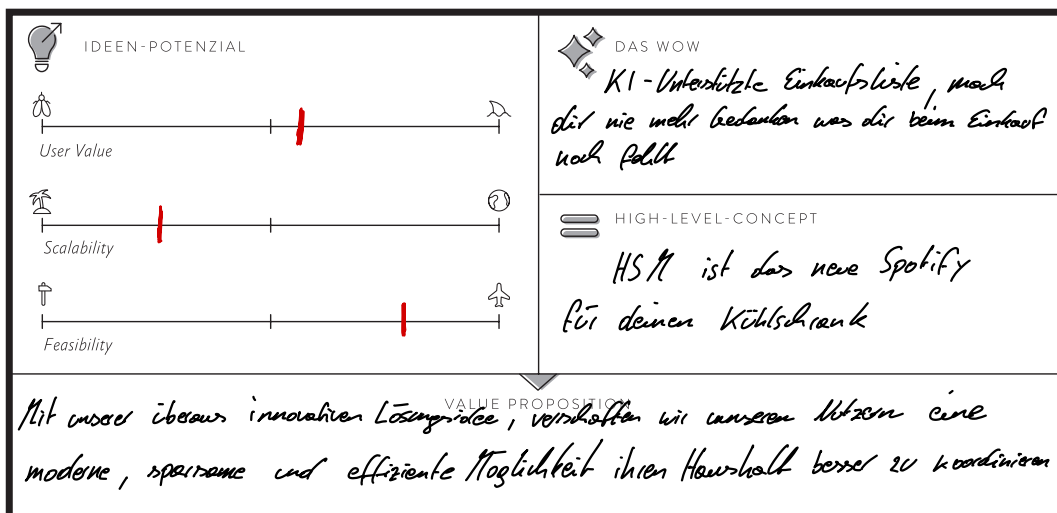 IDEEN-POTENZIAL
User Value
Scalability
Feasibility
DAS WOW
KI-Unterstützte Einkaufsliste, mach
dir nie mehr Gedanken was dir beim Einkauf
noch fehlt
HIGH-LEVEL-CONCEPT
HSM ist das neue Spotify
für deinen Kühlschrank
VALUE PROPOSITION
Mit unserer überaus innovativen Lösungsidee, verschaffen wir unseren Nutzern eine
moderne, sparsame und effiziente Möglichkeit ihren Haushalt besser zu koordinieren